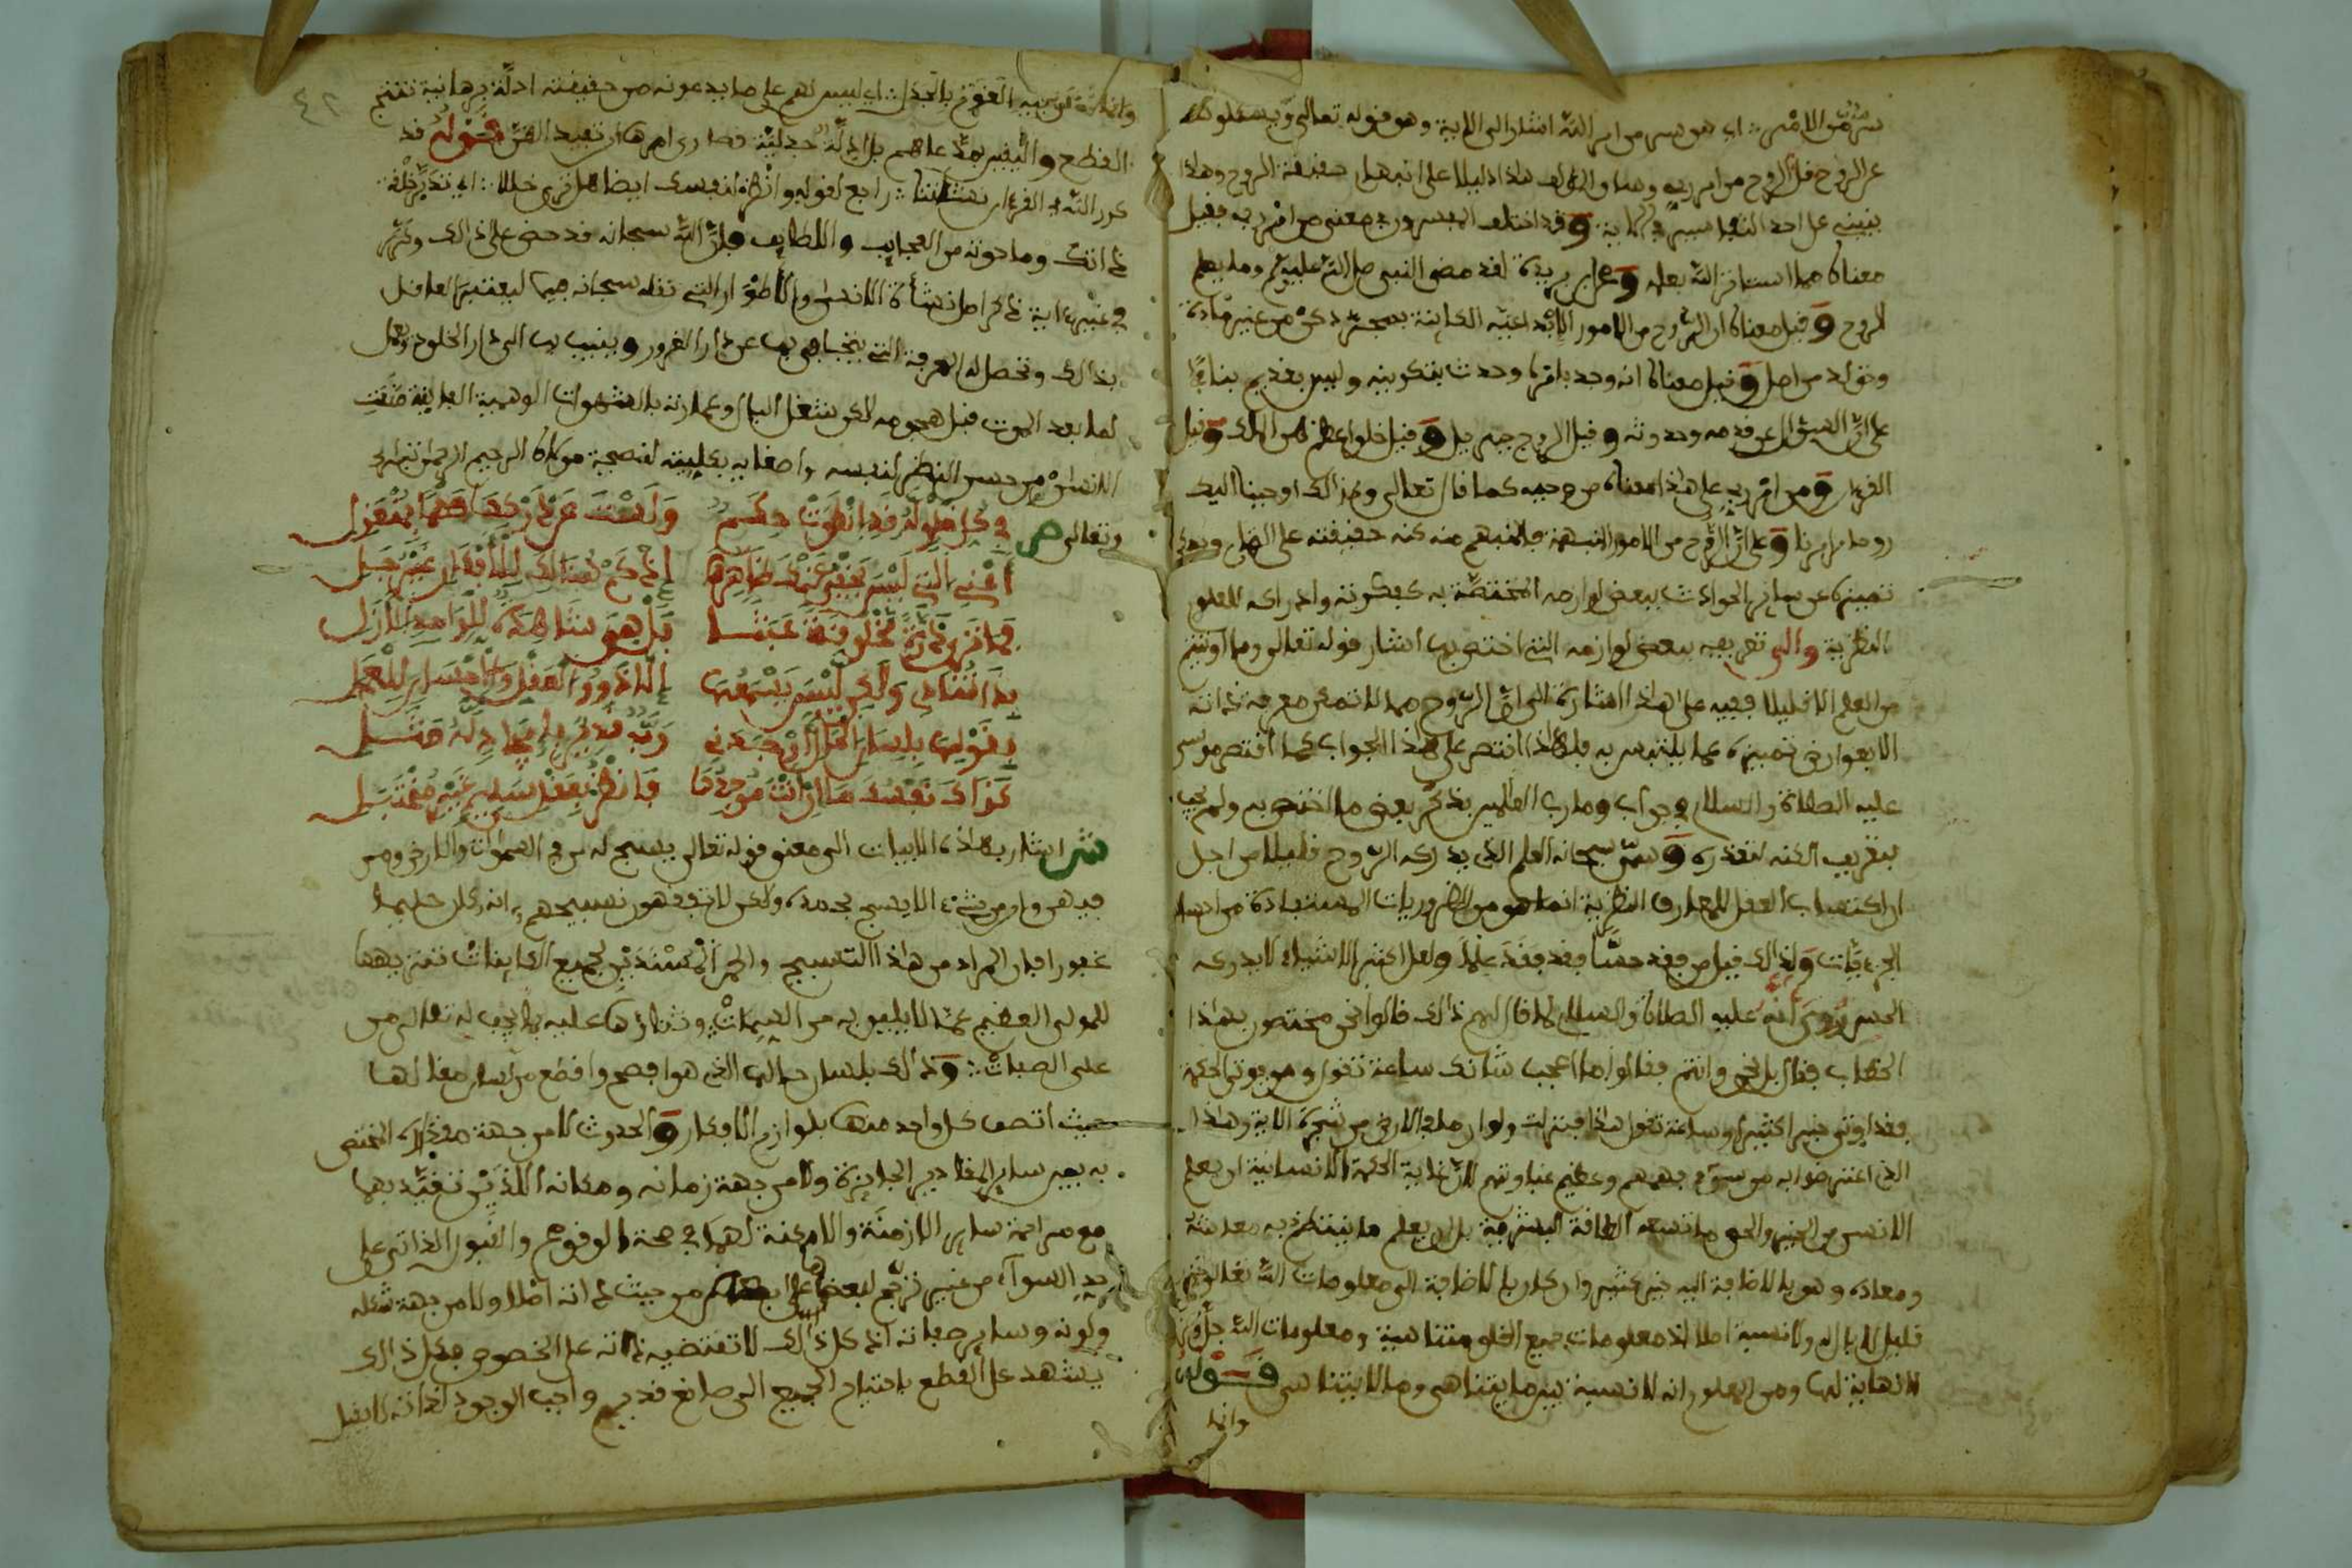 سر من الامر اي هو سر من امر الله اشار الى الاية وهو قوله تعالى ويسئلونك
عن الروح قل الروح من امر ربي وهذا دليلا على انه جهل حقيقة الروح وهذا
ينبني على احد التفاسير في الاية وقد اختلف المفسرون في معنى من امر ربي فقيل
معناه مما استاثر الله بعلمه وعن ابن بريدة لقد مضى النبي صلى الله عليه وسلم وما يعلم
الروح وقيل معناه ان الروح من الامور الابداعية الكاينة بمحض كن من غير مادة
وتولد من اصل وقيل معناه انه وجد بامره وحدث بتكوينه وليس بقديم بناء
على ان السؤال عن قدمه وحدوثه وقيل الروح جبريل وقيل خلق اعظم من الملك وقيل
القرءان ومن امر ربي على هذا معناه من وحيه كما قال تعالى وكذالك اوحينا اليك
روحا من امرنا وعلى ان الروح من الامور المبهمة فالمبهم منه كنه حقيقته على
تمييزه عن ساير الحوادث ببعض لوازمه المختصة به كفكرته وادراكه للعلوم
النظرية والى تعريفه ببعض لوازمه التي اختص بها اشار قوله تعالى وما اوتيتم
من العلم الا قليلا ففيه على هذا اشارة الى ان الروح مما لا تمكن معرفة ذاته
الا بعوارض تميزه عما يلتبس به فلهذا اقتصر على هذا الجواب كما اقتصر موسى
عليه الصلاة والسلام في جواب وما رب العالمين بذكر بعض ما اختص به ولم يجب
بتعريف الكنه لتعذره وسمى سبحانه العلم الذي يدركه الروح قليلا من اجل
ان اكتساب العقل للمعارف النظرية انما هو من الضروريات المستفادة من احساس
الجزءيات ولذالك قيل من فقد حسا فقد فقد علما ولعل اكثر الاشياء لا يدركه
الحس وروي انه عليه الصلاة والسلام لما قال لهم ذالك قالوا نحن مختصون بهذا
الخطاب فقال بل نحن وانتم فقالوا ما اعجب شانك ساعة تقول ومن يوت الحكمة
فقد اوتي خيرا كثيرا وساعة تقول هذا فنزلت ولو ان ما في الارض من شجرة الاية وهذا
الذي اعترضوا به من سوء فهمهم وعظيم غباوتهم لان غاية الحكمة الانسانية ان يعلم
الانس من الخير والحق ما تسعه الطاقة البشرية بل ان يعلم ما ينتظم به معاشه
ومعاده وهو بالاضافة اليه خير كثير وان كان بالاضافة الى معلومات الله تعالى
قليل لا بال له ولا نسبة اصلا اذ معلومات جميع الخلق متناهية ومعلومات الله جل وعز
لا نهاية لها ومن المعلوم انه لا نسبة بين ما يتناهى وما لا يتناهى قوله
وانما
٤٢
وانما القوم بالجدل اي ليس لهم على ما يدعونه من حقيقته ادلة برهانية تنتج
القطع واليقين بمدعاهم بل ادلة جدلية قصارى امرها ان تفيد الظن قوله قد
كرر الله في القرءان نشاتنا راجع لقوله وانظر لنفسك ايضا هل ترى خللا اي تدبر خلقة
ذاتك وما حوته من العجايب واللطايف فان الله سبحانه قد حض على ذالك وكرر
في غير ما اية ذكر اصل نشأة الانسان والاطوار التي نقله سبحانه فيها ليعتبر العاقل
بذالك وتحصل له المعرفة التي يتجافى بها عن دار الغرور وينيب بها الى دار الخلود ويعمل
لما بعد الموت قبل هجومه لاكن شغل البال وعمارته بالشهوات الوهمية الفانية منعت
الانسان من حسن النظر لنفسه واصغايه بكليته لنصيحة مولاه الرحيم الرحمن تبارك
وتعالى ص في كل خطوة قد انطوت حكم ولست عن درك معناها بمنعزل
اعني التي ليس يخفى عنك ظاهرها اذ كم هنالك للافكار غير جلي
فما ترى ذرة مخلوقة عبثا بل هو شاهدة للواحد الازل
بذا تنادي ولكن ليس يسمعها الا ذوو العقل والاحسان للعمل
بقولها بلسان الحال اوجدني رب قدير بلا مثل
كذاك نفسك مـا ان انت موجدها فانظر بعقل سليم غير مختبل
ش اشار بهذه الابيات الى معنى قوله تعالى يسبح له من في السموات والارض ومن
فيهن وان من شيء الا يسبح بحمده ولكن لا تفقهون تسبيحهم انه كان حليما
غفورا فبان المراد من هذا التسبيح والحمد المسندين لجميع الكاينات تنزيهها
للمولى العظيم عما لا يليق به من السمات وثناؤها عليه بما يجب له تعالى من
على الصفات وذالك بلسان حالها الذي هو افصح واقطع من لسان مقالها
حيث اتصف كل واحد منها بلوازم الافتقار والحدوث لا من جهة مقداره المختص
به بين ساير المقادير الجايزة ولا من جهة زمانه ومكانه اللذين تقيد بهما
مع مزاحمة ساير الازمنة والامكنة لهما في صحة الوقوع والقبول الذاتي على
حد السواء من غير ترجح لبعضها على بعض من حيث ذاته اصلا ولا من جهة شكله
ولونه وساير صفاته اذ كل ذالك لا تقتضيه ذاته على الخصوص فكل ذالك
يشهد على القطع باحتياج الجميع الى صانع قديم واجب الوجود لذاته لا يقبل